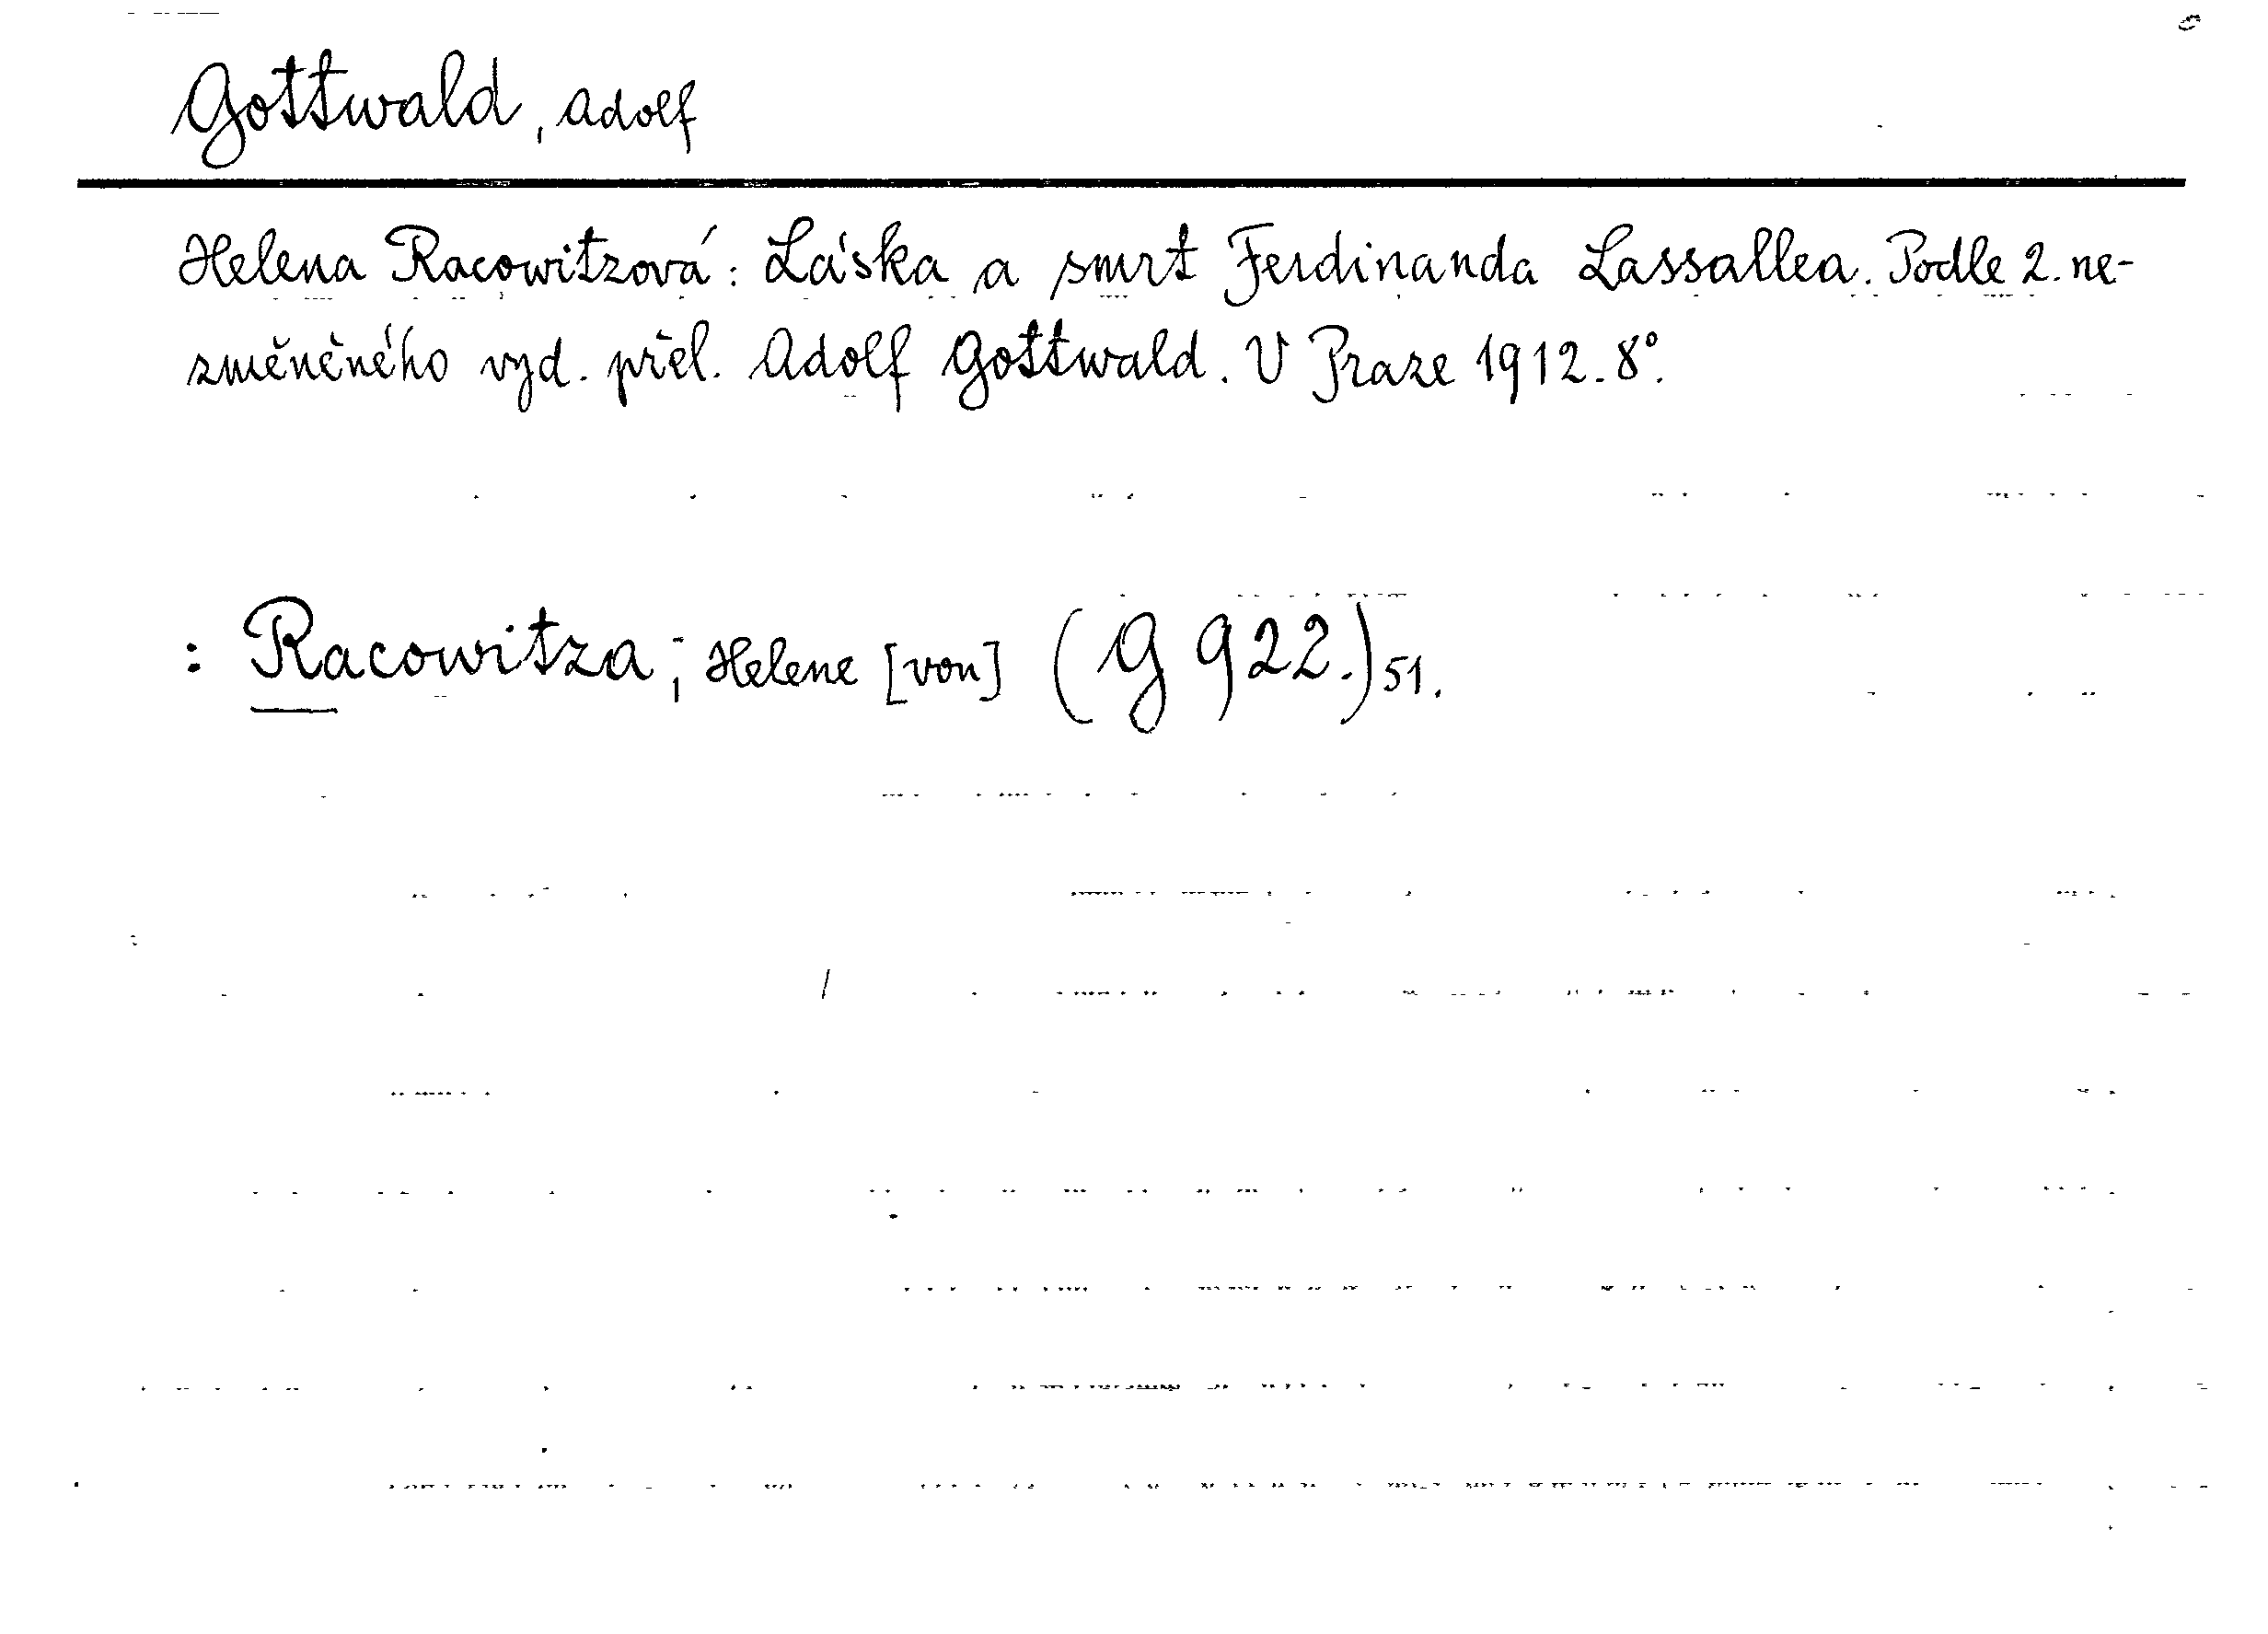 Gottwald, Adolf
Helena Racowitzová: Láska a smrt Ferdinanda Lassallea. Podle 2. ne-
změněného vyd. přel. Adolf Gottwald. V Praze 1912. 8°.
: Racowitza; Helene [von] (G 922.) 51.